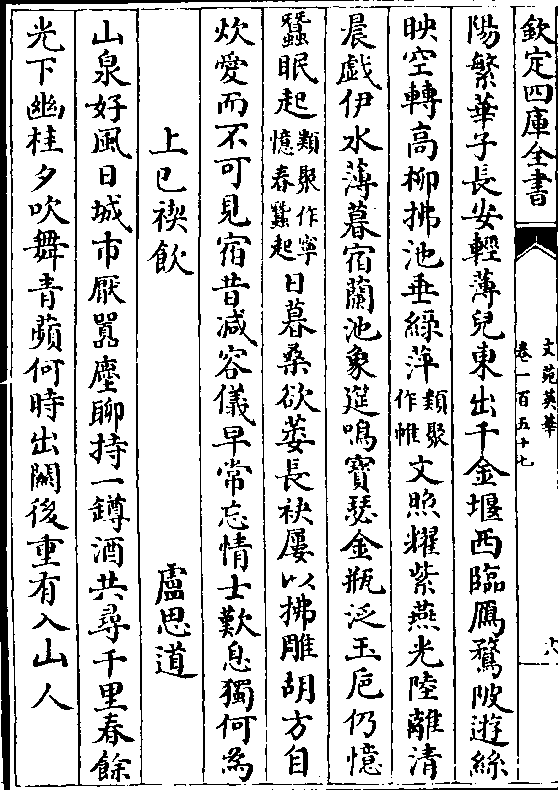 欽定四庫全書
文苑英華
卷一百五十七
六
陽繁華子長安輕薄兒東出千金堰西臨鴈鶩陂遊絲
映空轉高柳拂池垂綠萍類聚作帷文照耀紫燕光陸離清
晨戲伊水薄暮宿蘭池象筵鳴寶瑟金瓶泛玉巵仍憶
蠶眠起類聚作寧憶春蠶起日暮桑欲萎長袂屢以拂雕胡方自
炊愛而不可見宿昔減容儀早常忘情士歎息獨何為
上巳禊飲
盧思道
山泉好風日城市厭囂塵聊持一罇酒共尋千里春餘
光下幽桂夕吹舞青蘋何時出關後重有入山人